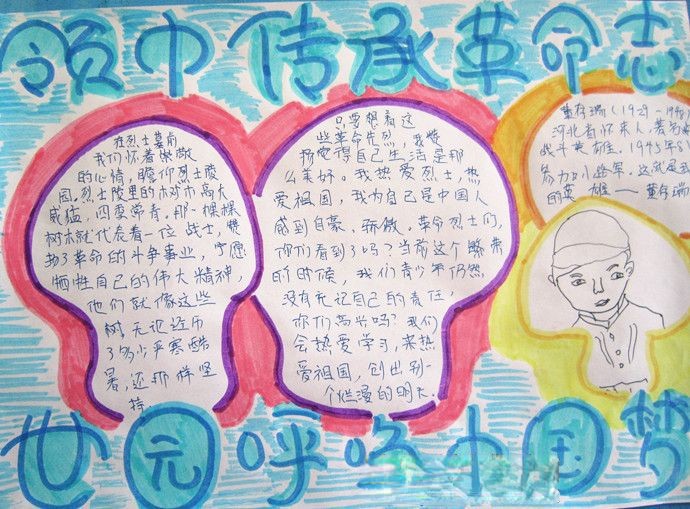 领巾传承革命志
在烈士墓前
我们怀着崇敬
的心情,瞻仰烈士陵
园,烈士陵里的树木高大
威猛,四季常青,那一棵棵
树木就代表着一位战士,
了革命的斗争事业,宁愿
牺牲自己的伟大精神,
他们就像这些
树,无论经历
了多少严寒酷
暑,还那样坚
持。
只要想着这
些革命先烈,我
得自己生活是那
么美好。我热爱烈士,热
爱祖国,我为自己是中国人
感到自豪、骄傲。革命烈士们,
你们看到了吗?当前这个繁荣
的时候,我们青少年仍然
没有忘记自己的责任,
你们高兴吗?我们
会热爱学习,来热
爱祖国,创出别一
个烂漫的明天。
董存瑞(1929-1948)
河北省怀来人,著名
战斗英雄。1945年8
参加八路军。这就是我
的英雄——董存瑞
世园呼唤中国梦